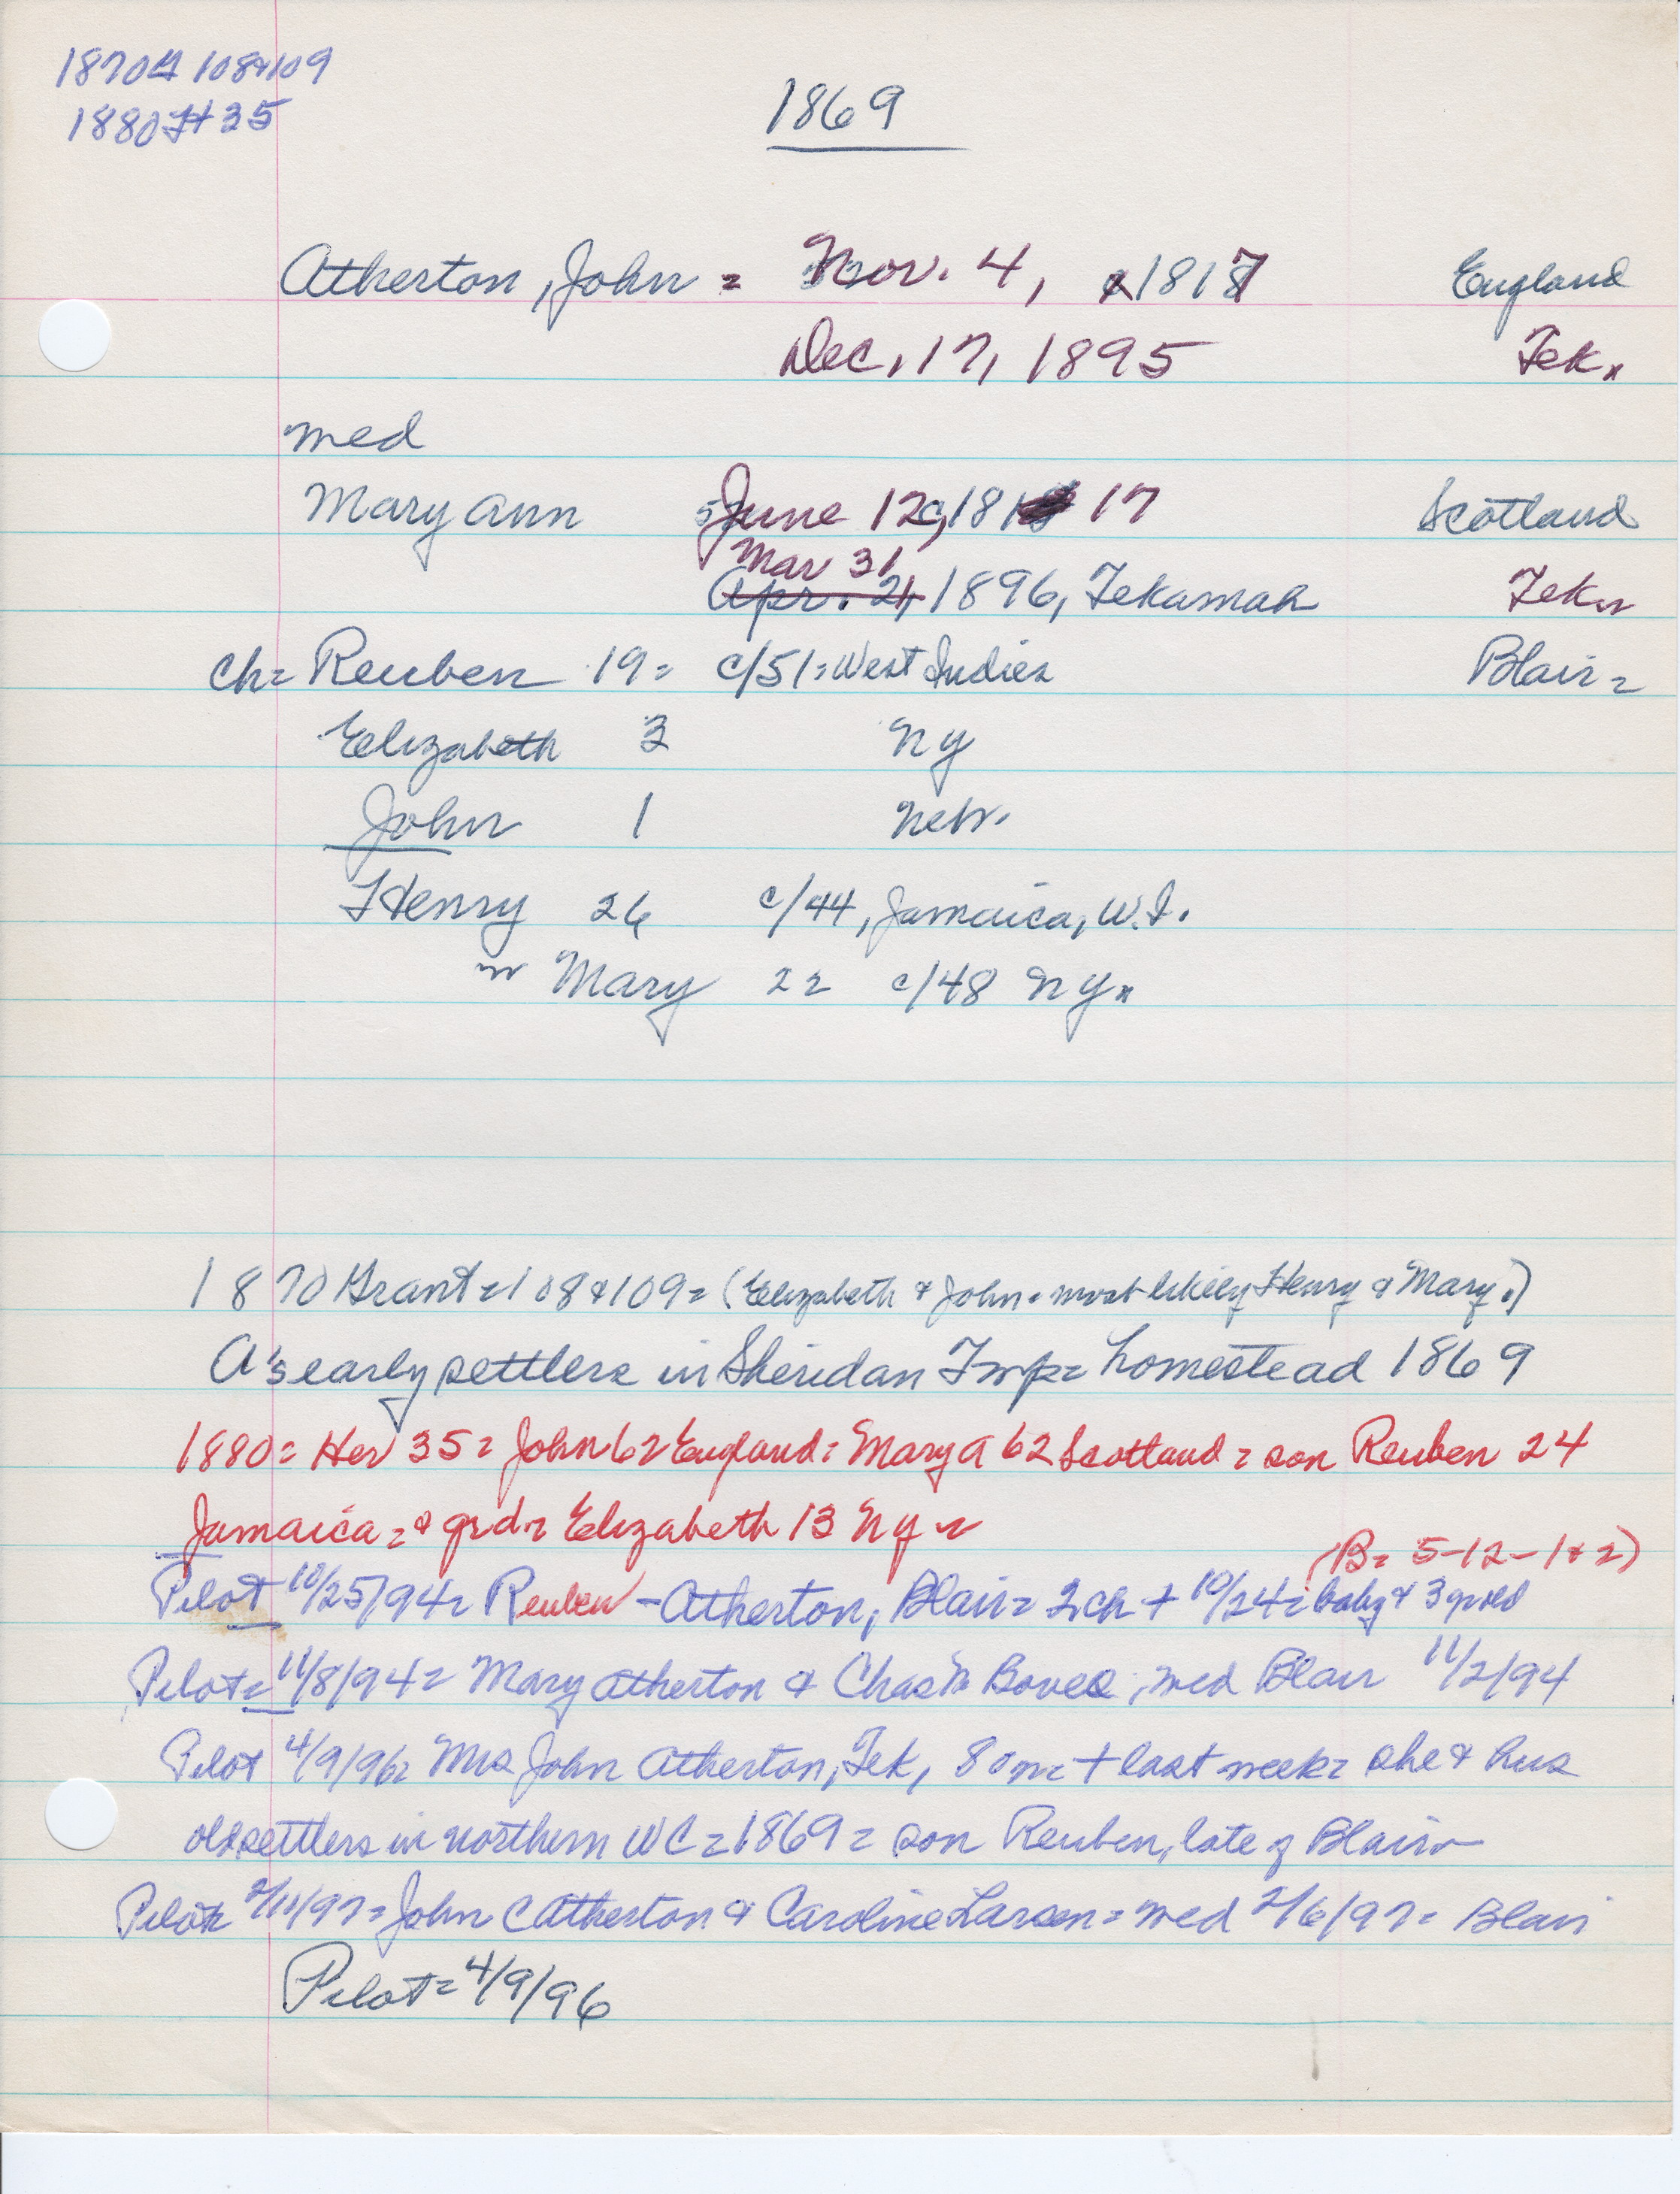 1870G 108&109
1880H 35
1869
Atherton, John = Nov. 4, 1817 England
Dec. 17, 1895 Tek.
med
Mary Ann June 12, 1817 Scotland
Mar 31
Apr. 2, 1896, Tekamah Tek.
ch= Reuben 19= c/51= West Indies Blair=
Elizabeth 3 NY
John 1 Nebr.
Henry 26 c/44, Jamaica, W.I.
w Mary 22 c/48 NY.
1870 Grant=108&109= (Elizabeth & John = most likely Henry & Mary.)
A's early settlers in Sheridan Twp= homestead 1869
1880= Her 35= John 62 England= Mary A 62 Scotland= son Reuben 24
Jamaica= & grd= Elizabeth 13 NY=
(B= 5-12-1&2)
Pilot 10/25/94= Reuben - Atherton, Blair= 2 ch + 10/24= baby & 3 yr old
Pilot= 11/8/94= Mary Atherton & Chas Bovee, med Blair 11/2/94
Pilot 4/9/96= Mrs John Atherton, Tek, 80 + last week= she & hus
old settlers in northern WC=1869= son Reuben, late of Blair
Pilot 2/11/97= John C Atherton & Caroline Larsen= med 2/6/97= Blair
Pilot= 4/9/96